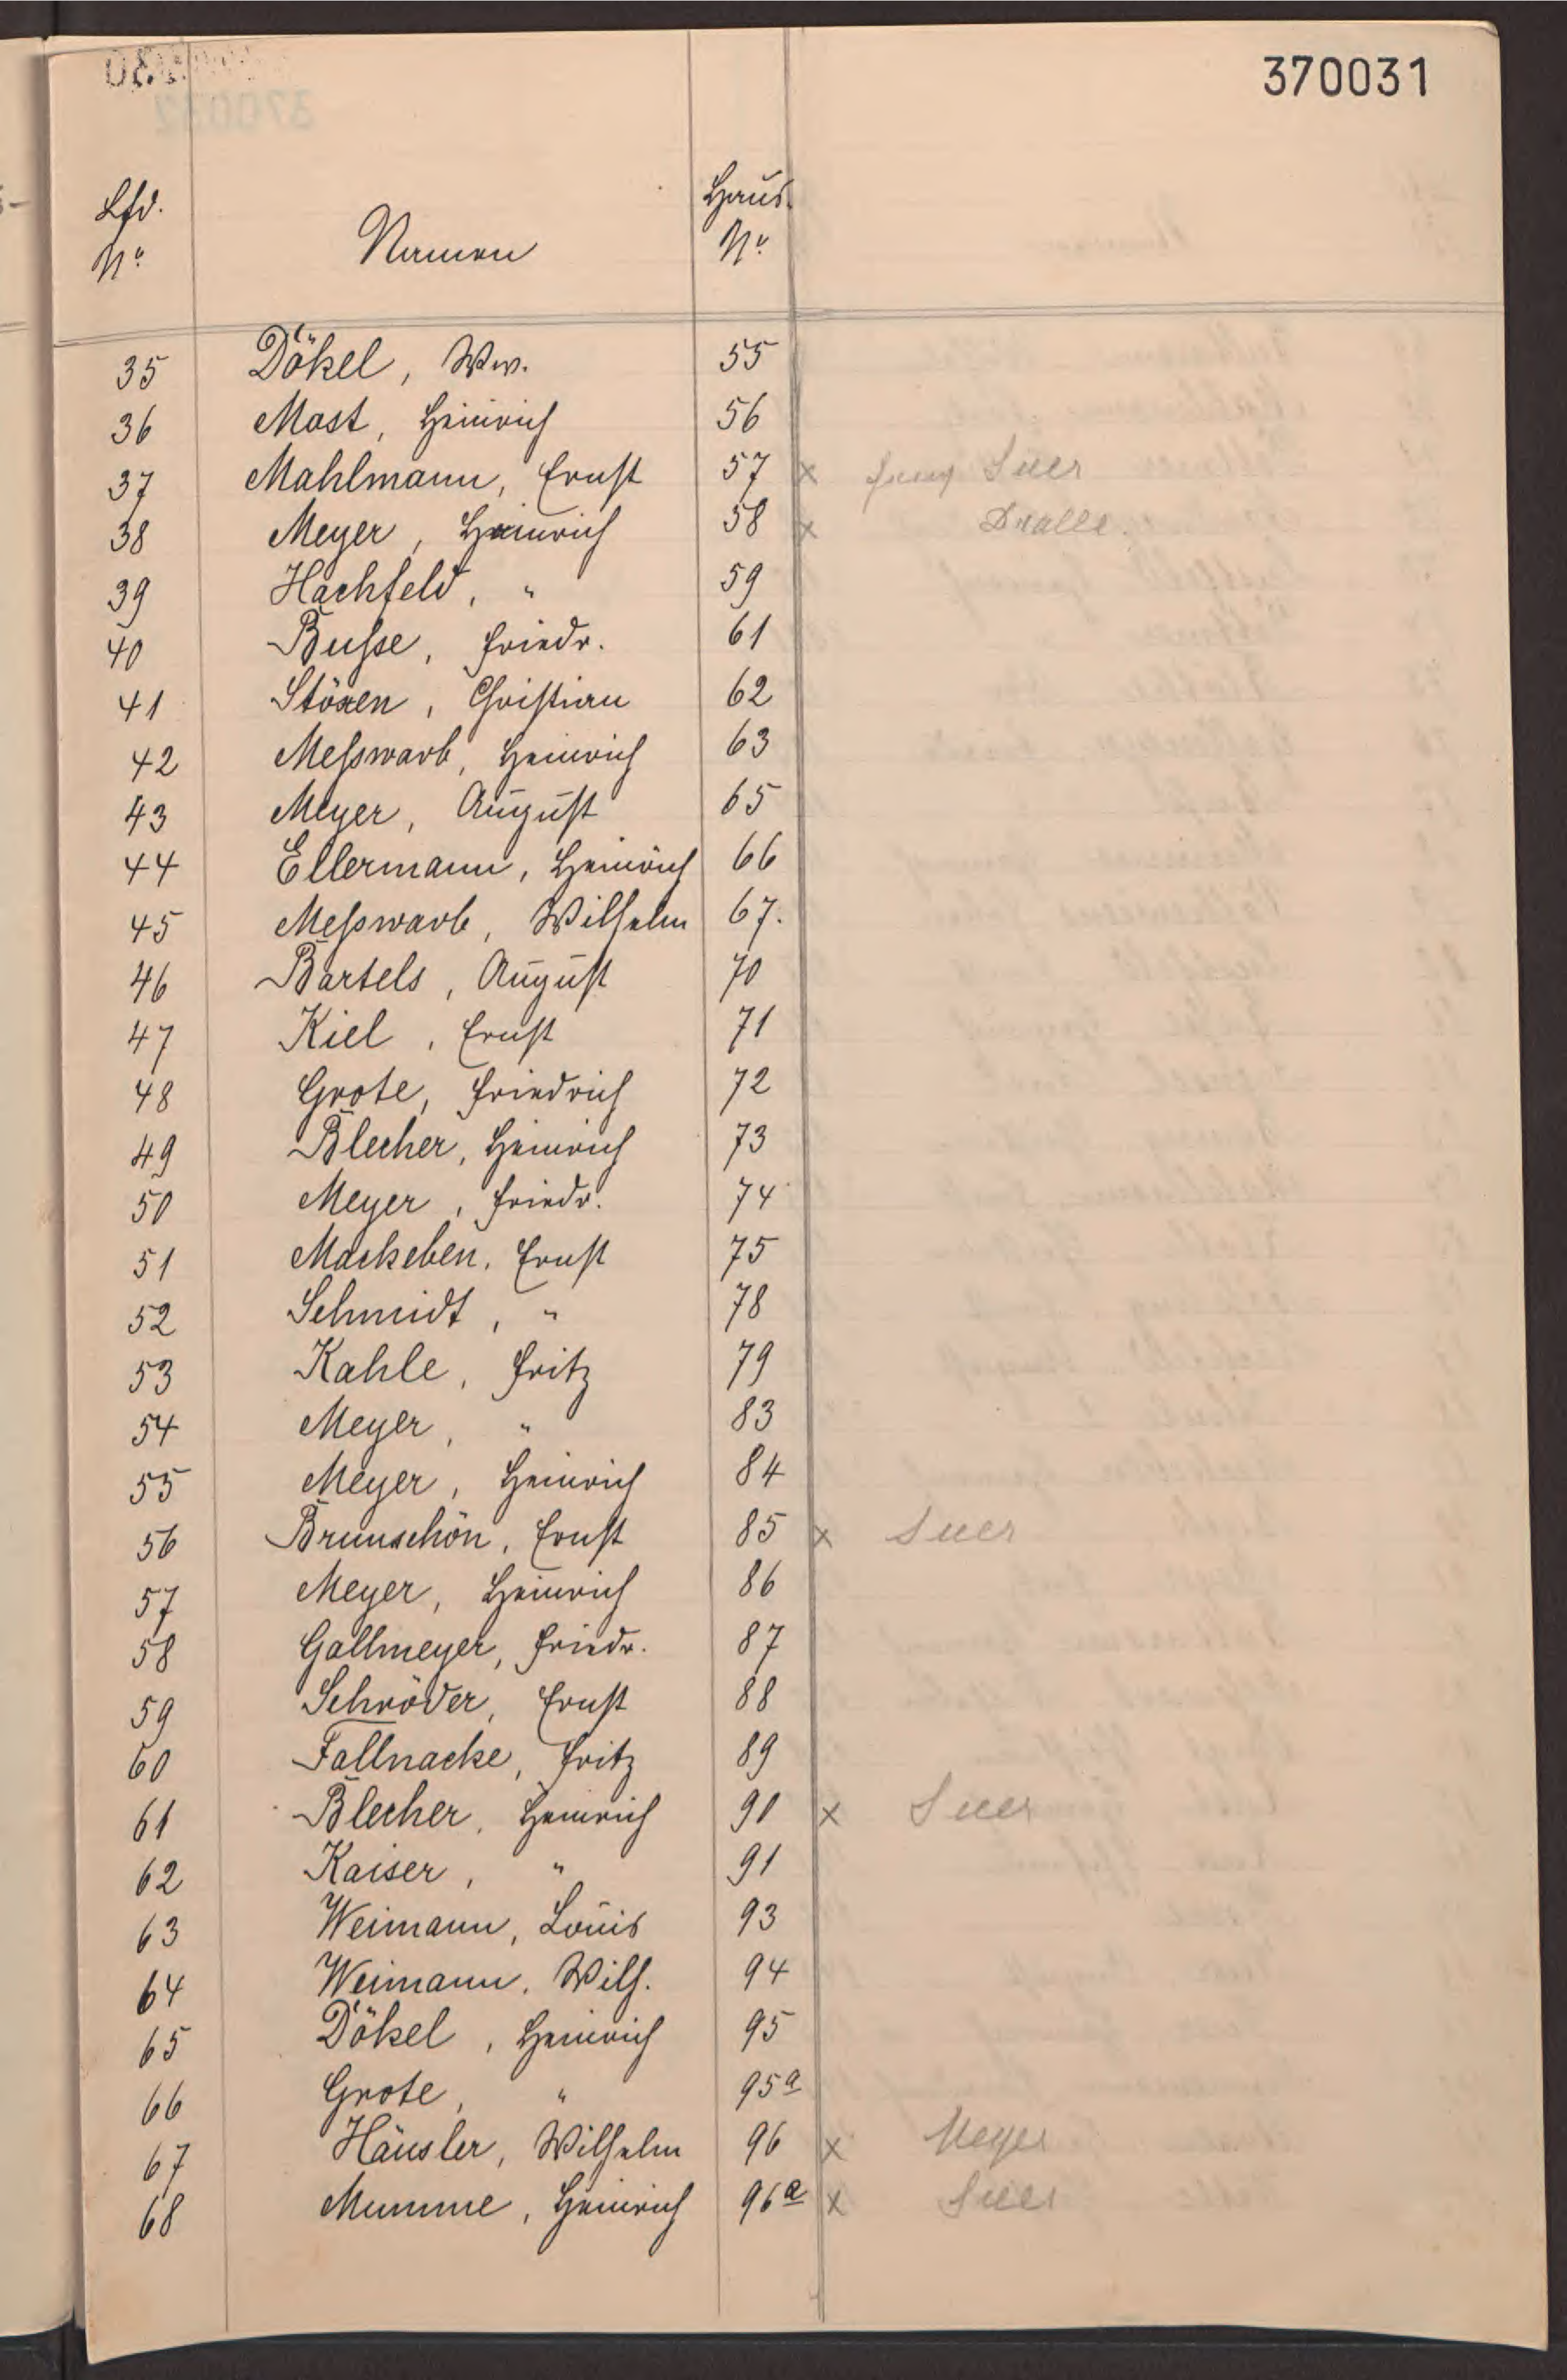 370031
Lfd. No. Namen Haus No.
35 Dökel, Ww. 55
36 Most, Heinrich 56
37 Mahlmann, Ernst 57 x Suer
38 Meyer, Heinrich 58 x Dralle.
39 Hachfeld, " 59
40 Busse, Friedr. 61
41 Stöxen, Christian 62
42 Meßwarb, Heinrich 63
43 Meyer, August 65
44 Ellermann, Heinrich 66
45 Meßwarb, Wilhelm 67.
46 Bartels, August 70
47 Kiel, Ernst 71
48 Grote, Friedrich 72
49 Blecher, Heinrich 73
50 Meyer, Friedr. 74
51 Mackeben, Ernst 75
52 Schmidt, " 78
53 Kahle, Fritz 79
54 Meyer, " 83
55 Meyer, Heinrich 84
56 Brunschön, Ernst 85 x Suer
57 Meyer, Heinrich 86
58 Gallmeyer, Friedr. 87
59 Schröder, Ernst 88
60 Fallnacke, Fritz 89
61 Blecher, Heinrich 90 x Suer
62 Kaiser, " 91
63 Weimann, Louis 93
64 Weimann, Wilh. 94
65 Dökel, Heinrich 95
66 Grote, " 95a
67 Häusler, Wilhelm 96 x Meyer
68 Mumme, Heinrich 96a x Suer